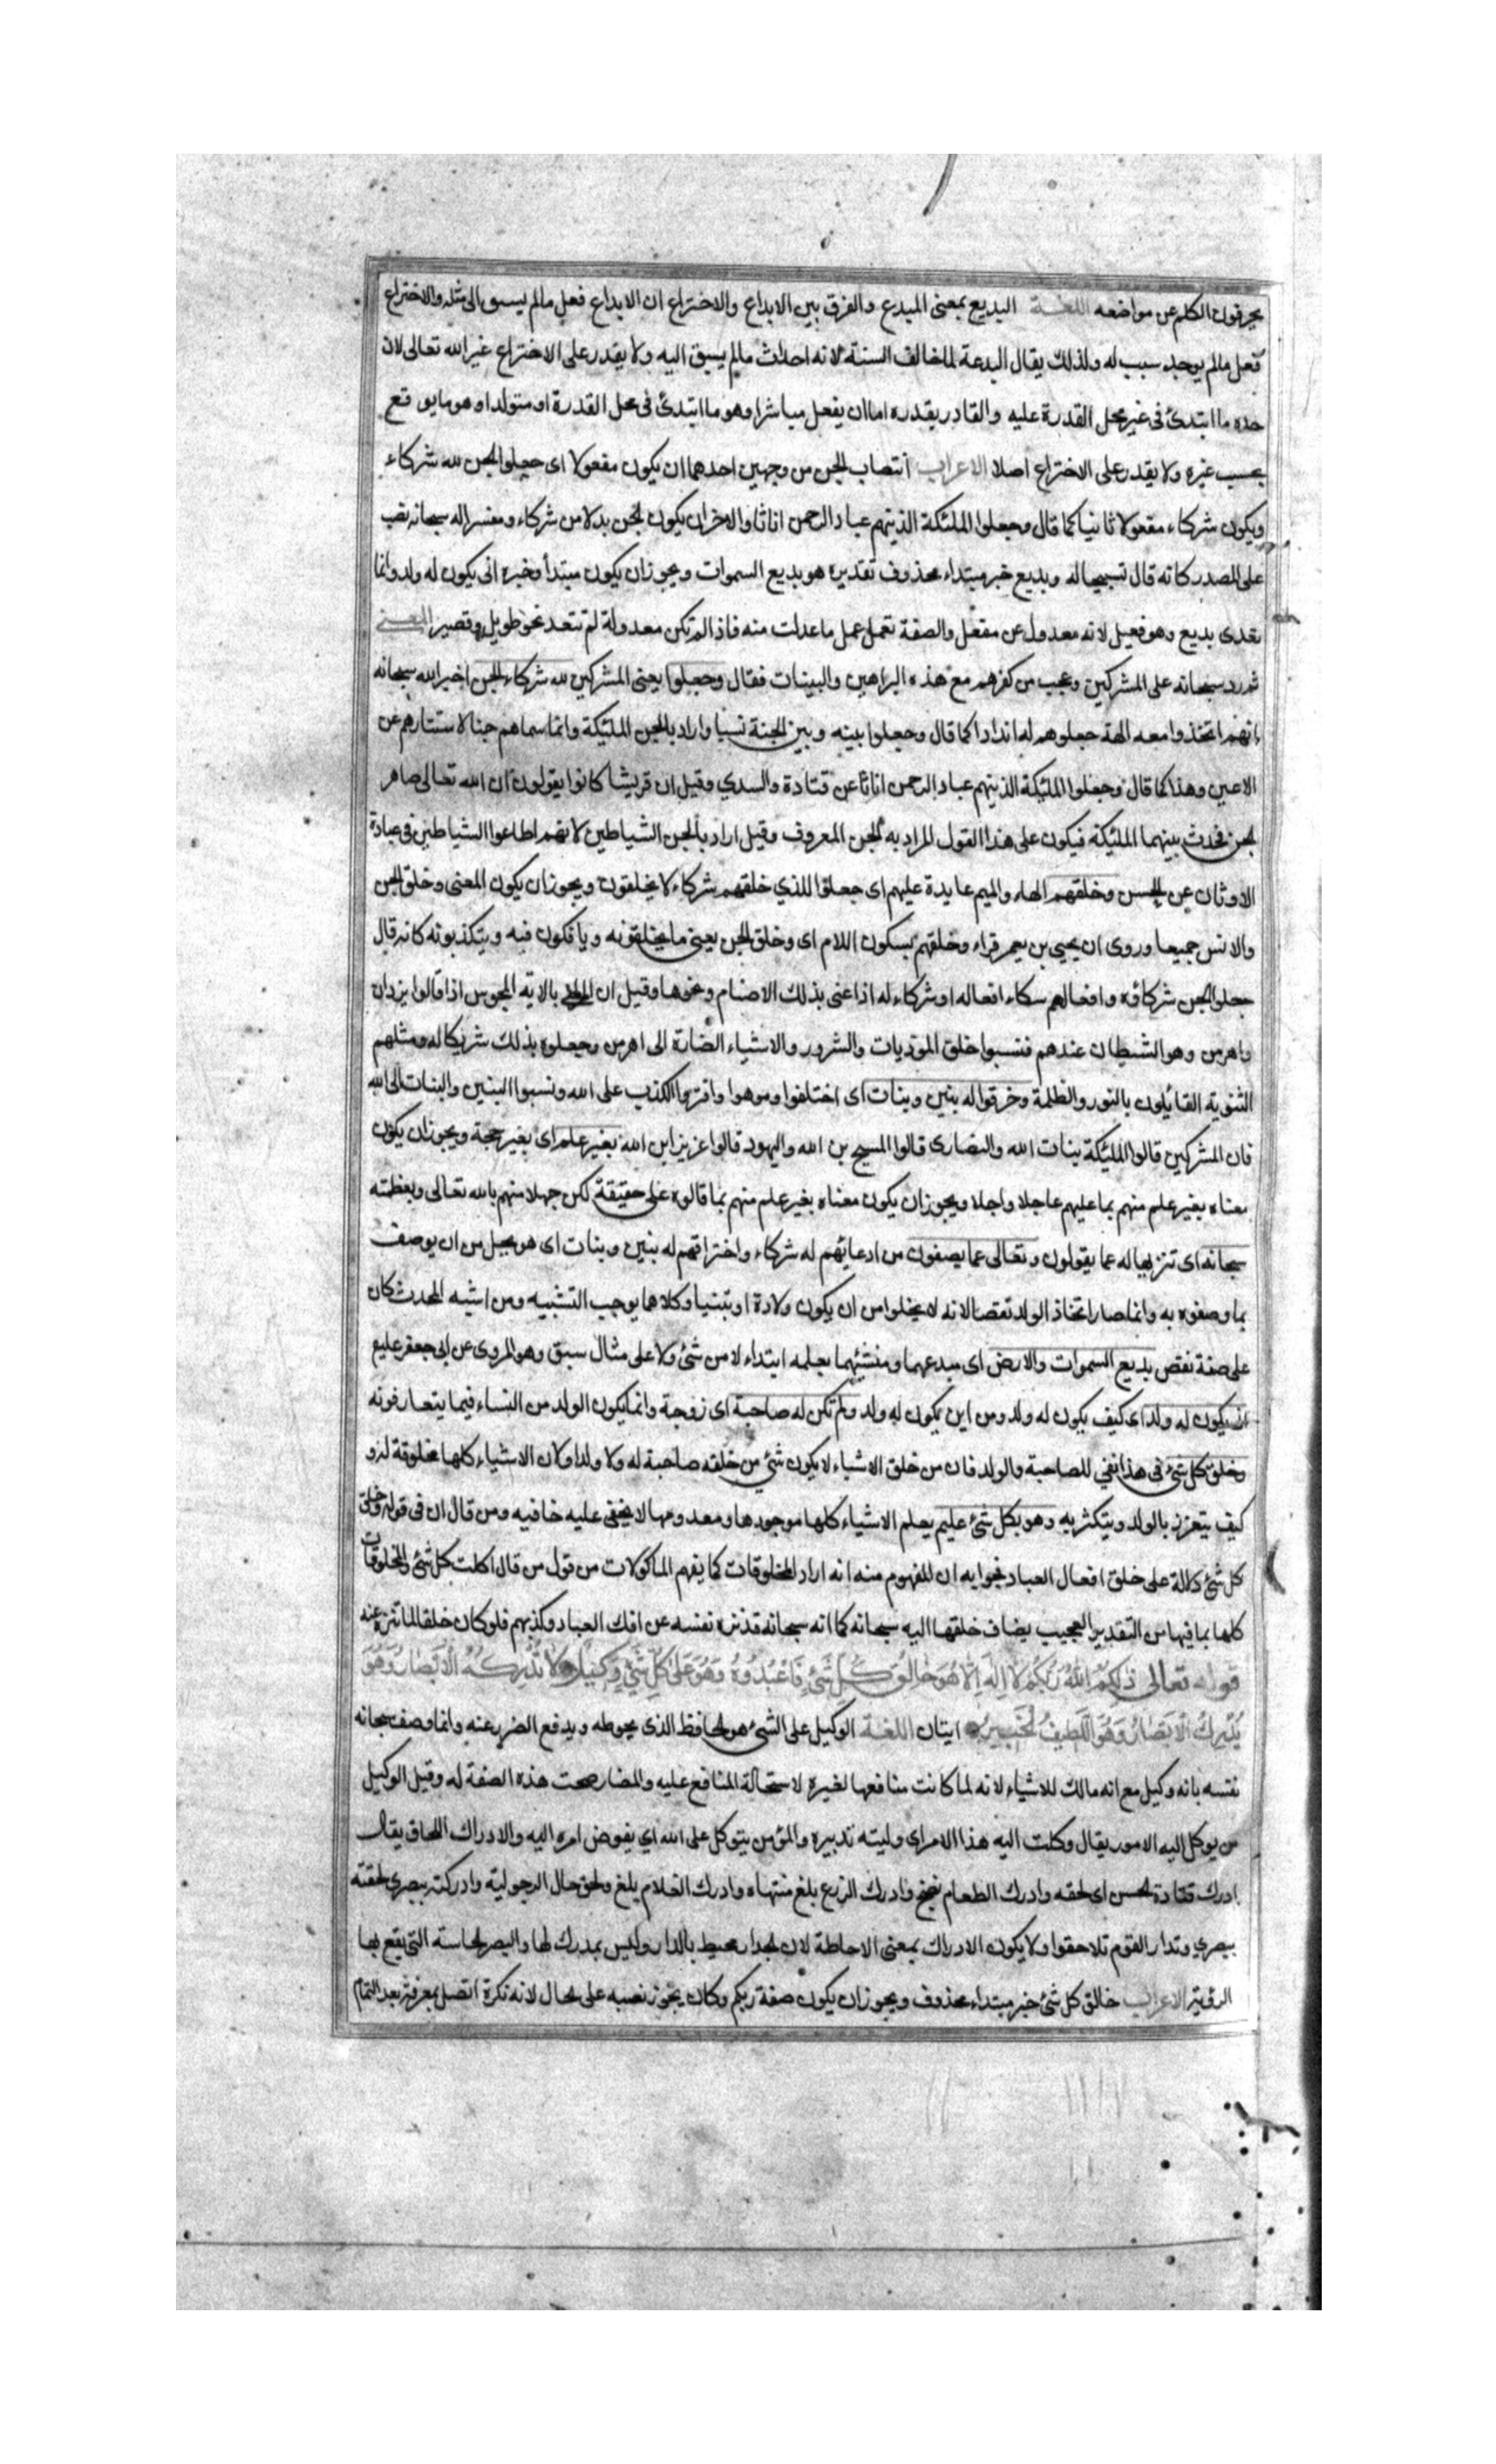 يحرفون الكلم عن مواضعه اللغة البديع بمعنى المبدع والفرق بين الابداع والاختراع ان الابداع فعل مالم يسبق الى مثله والاختراع
فعل مالم يوجد سبب له ولذلك يقال البدعة لما خالف السنة لانه احداث مالم يسبق اليه ولا يقدر على الاختراع غير الله تعالى لان
حده ما ابتدئ فى غير محل القدرة عليه والقادر بقدره اما ان يفعل مباشرا وهو ما ابتدئ فى محل القدرة او متولدا وهو ما يوقع
بحسب غيره ولا يقدر على الاختراع اصلا الاعراب انتصاب الجن من وجهين احدهما ان يكون مفعولا اى جعلوا الجن لله شركاء
ويكون شركاء مفعولا ثانيا كما قال وجعلوا الملئكة الذينهم عباد الرحمن اناثا والاخران يكون الجن بدلا من شركاء ومفسرا له سبحانه نصب
على المصدر كانه قال تسبيحا له وبديع خبر مبتداء محذوف تقديره هو بديع السموات ويجوز ان يكون مبتدأ وخبره انى يكون له ولد وانما
تعدى بديع وهو فعيل لانه معدول عن مفعل والصفة تعمل عمل ما عدلت منه فاذا لم تكن معدولة لم تتعد نحو طويل وقصير المعنى
ثم رد سبحانه على المشركين وعجب من كفرهم مع هذه البراهين والبينات فقال وجعلوا يعنى المشركين لله شركاء الجن اخبر الله سبحانه
انهم اتخذوا معه الهة جعلوهم له اندادا كما قال وجعلوا بينه وبين الجنة نسبا واراد بالجن الملئكة وانما سماهم جنا لاستتارهم عن
الاعين وهذا كما قال وجعلوا الملئكة الذينهم عباد الرحمن اناثا عن قتادة والسدي وقيل ان قريشا كانوا يقولون ان الله تعالى صاهر
الجن فحدث بينهما الملئكة فيكون على هذا القول المراد به الجن المعروف وقيل اراد بالجن الشياطين لانهم اطاعوا الشياطين فى عبادة
الاوثان عن الحسن وخلقهم الهاء والميم عايدة عليهم اى جعلوا للذي خلقهم شركاء لا يخلقون ويجوز ان يكون المعنى وخلق الجن
والانس جميعا وروى ان يحيى بن يعمر قراء وخلقهم بسكون اللام اى وخلق الجن يعنى ما يختلقونه ويافكون فيه ويتكذبونه كانه قال
جعلوا الجن شركاؤه وافعالهم شركاء افعاله او شركاء له اذا عنى بذلك الاصنام ونحوها وقيل ان المراد بالاية المجوس اذا قالوا يزدان
واهرمن وهو الشيطان عندهم فنسبوا خلق الموذيات والشرور والاشياء الضارة الى اهرمن وجعلوه بذلك شريكا له ومثلهم
الثنوية القائلون بالنور والظلمة وخرقوا له بنين وبنات اى اختلفوا وموهوا وافتروا الكذب على الله ونسبوا البنين والبنات الى الله
فان المشركين قالوا الملئكة بنات الله والنصارى قالوا المسيح بن الله واليهود قالوا عزيز ابن الله بغير علم اى بغير حجة ويجوز ان يكون
معناه بغير علم منهم بما عليهم عاجلا واجلا ويجوز ان يكون معناه بغير علم منهم بما قالوه على حقيقة لكن جهلا منهم بالله تعالى وبعظمته
سبحانه اى تنزيها له عما يقولون وتعالى عما يصفون من ادعائهم له شركاء واختراقهم له بنين وبنات اى هو يجل من ان يوصف
بما وصفوه به وانما صار اتخاذ الولد نقصا لانه لا يخلوا من ان يكون ولادة او تبنيا وكلاهما يوجب التشبيه ومن اشبه المحدث كان
على صفة نقص بديع السموات والارض اى مبدعهما ومنشئهما بعلمه ابتداء لا من شئ ولا على مثال سبق وهو المروى عن ابى جعفر عليع
انى يكون له ولد اى كيف يكون له ولد ومن اين يكون له ولد ولم تكن له صاحبة اى زوجة وانما يكون الولد من النساء فيما يتعارفونه
وخلق كل شئ فى هذا نفي للصاحبة والولد فان من خلق الاشياء لا يكون شئ من خلقه صاحبة له ولا ولدا ولان الاشياء كلها مخلوقة له و
كيف يتعزز بالولد ويتكثر به وهو بكل شئ عليم يعلم الاشياء كلها موجودها ومعدومها لا يخفى عليه خافيه ومن قال ان فى قوله وخلق
كل شئ دلالة على خلق افعال العباد فجوابه ان المفهوم منه انه اراد المخلوقات كما يفهم الماكولات من قول من قال اكلت كل شئ والمخلوقات
كلها بما فيها من التقدير العجيب يضاف خلقها اليه سبحانه كما انه سبحانه قد نزه نفسه عن افك العباد وكذبهم فلو كان خلقا له لما تنزه عنه
قوله تعالى ذٰلِكُمُ اللّٰهُ رَبُّكُمْ لَا اِلٰهَ اِلَّا هُوَ خَالِقُ كُلِّ شَئٍ فَاعْبُدُوهُ وَهُوَ عَلٰى كُلِّ شَئٍ وَكِيلٌ لَا تُدْرِكُهُ الْاَبْصَارُ وَهُوَ
يُدْرِكُ الْاَبْصَارَ وَهُوَ اللَّطِيفُ الْخَبِيرُ ايتان اللغة الوكيل على الشئ هو الحافظ الذى يحوطه ويدفع الضرر عنه وانما وصف سبحانه
نفسه بانه وكيل مع انه مالك للاشياء لانه لما كانت منافعها لغيره لاستحالة المنافع عليه والمضار صحت هذه الصفة له وقيل الوكيل
من يوكل اليه الامور يقال وكلت اليه هذا الامر اى وليته تدبيره والمؤمن يتوكل على الله اي يفوض امره اليه والادراك اللحاق يقال
ادرك قتادة الحسن اى لحقه وادرك الطعام نضج وادرك الزرع بلغ منتهاه وادرك الغلام بلغ ولحق حال الرجولية وادركته ببصري لحقته
ببصري وتدارك القوم تلاحقوا ولا يكون الادراك بمعنى الاحاطة لان الجدار محيط بالدار وليس بمدرك لها والبصر الحاسة التى يقع بها
الرؤية الاعراب خالق كل شئ خبر مبتداء محذوف ويجوز ان يكون صفة ربكم وكان يجوز نصبه على الحال لانه نكرة اتصل بمعرفة بعد التمام